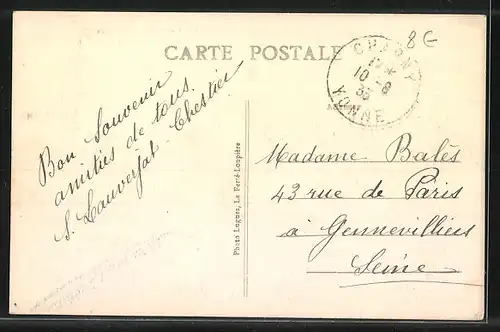 8€
CARTE POSTALE
YONNE
10-8
35
Bon Souvenir
amitiés de tous.
S. Lauverjat-Chestier
Photo Lugues, La Ferté-Loupière
Madame Balès
43 rue de Paris
à Gennevilliers
Seine